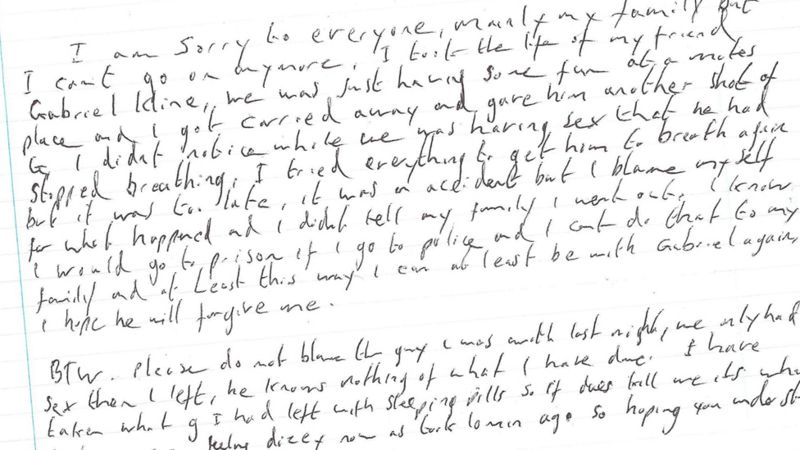 I am sorry to everyone, mainly my family but
I cant go on anymore, I took the life of my friend
Gabriel Kline, we was just having some fun at a mates
place and I got carried away and gave him another shot of
G I didnt notice while we was having sex that he had
stopped breathing. I tried everything to get him to breath again
but it was to late, it was an accident but I blame my self
for what happened and I didnt tell my family I went out. I know
I would go to prison if I go to police and I cant do that to my
family and at least this way I can at least be with Gabriel again,
I hope he will forgive me.
BTW. Please do not blame the guy I was with last night, we only had
sex then I left, he knows nothing of what I have done. I have
taken what g I had left with sleeping pills so if it does kill me its wha
feeling dizzy now as took 10 min ago so hoping you underst